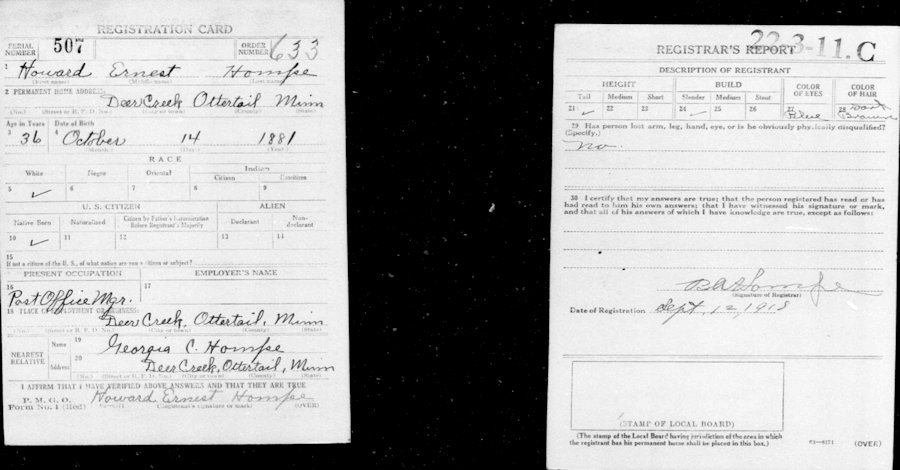 REGISTRATION CARD
SERIAL NUMBER 507 ORDER NUMBER 633
1 Howard Ernest Hompe
(First name) (Middle name) (Last name)
2 PERMANENT HOME ADDRESS:
Deer Creek Ottertail Minn
(No.) (Street or R. F. D. No.) (City or town) (County) (State)
Age in Years Date of Birth
3 36 4 October 14 1881
(Month.) (Day.) (Year.)
RACE
White Negro Oriental Indian
Citizen Noncitizen
5 ✓ 6 7 8 9
U. S. CITIZEN ALIEN
Native Born Naturalized Citizen by Father's Naturalization Before Registrant's Majority Declarant Non-declarant
10 ✓ 11 12 13 14
15
If not a citizen of the U. S., of what nation are you a citizen or subject?
PRESENT OCCUPATION EMPLOYER'S NAME
16 17
Post Office Mgr.
18 PLACE OF EMPLOYMENT OR BUSINESS:
Deer Creek, Ottertail, Minn
(No.) (Street or R. F. D. No.) (City or town) (County) (State)
NEAREST RELATIVE
Name 19 Georgia C. Hompe
Address 20 Deer Creek, Ottertail, Minn
(No.) (Street or R. F. D. No.) (City or town) (County) (State)
I AFFIRM THAT I HAVE VERIFIED ABOVE ANSWERS AND THAT THEY ARE TRUE
P. M. G. O.
Form No. 1 (Red) Howard Ernest Hompe
(Registrant's signature or mark) (OVER)
22-3-11. C
REGISTRAR'S REPORT
DESCRIPTION OF REGISTRANT
HEIGHT BUILD COLOR OF EYES COLOR OF HAIR
Tall Medium Short Slender Medium Stout
21 ✓ 22 23 24 ✓ 25 26 27 Blue 28 Dark Brown
29 Has person lost arm, leg, hand, eye, or is he obviously physically disqualified?
(Specify.)
no.
30 I certify that my answers are true; that the person registered has read or has
had read to him his own answers; that I have witnessed his signature or mark,
and that all of his answers of which I have knowledge are true, except as follows:
Hompe
(Signature of Registrar)
Date of Registration Sept. 12, 1918
(STAMP OF LOCAL BOARD)
(The stamp of the Local Board having jurisdiction of the area in which
the registrant has his permanent home shall be placed in this box.)
63—6171 (OVER)